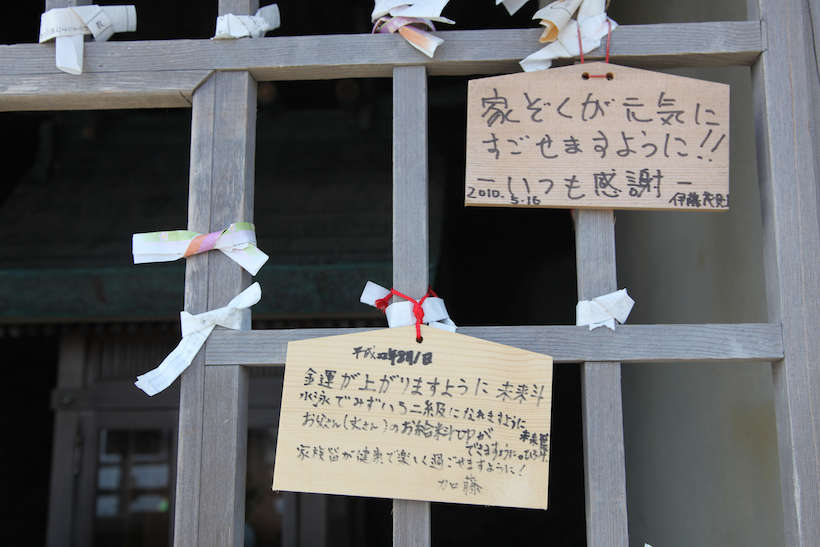 家ぞくが元気に
すごせますように!!
ーいつも感謝ー
2010.5.16
伊藤茂
平成22年8月1日
金運が上がりますように 未来斗
水泳でみずいろ二級になれますように
お父さん(丈さん)のお給料upが
できますように。
家族皆が健康で楽しく過ごせますように!
加藤